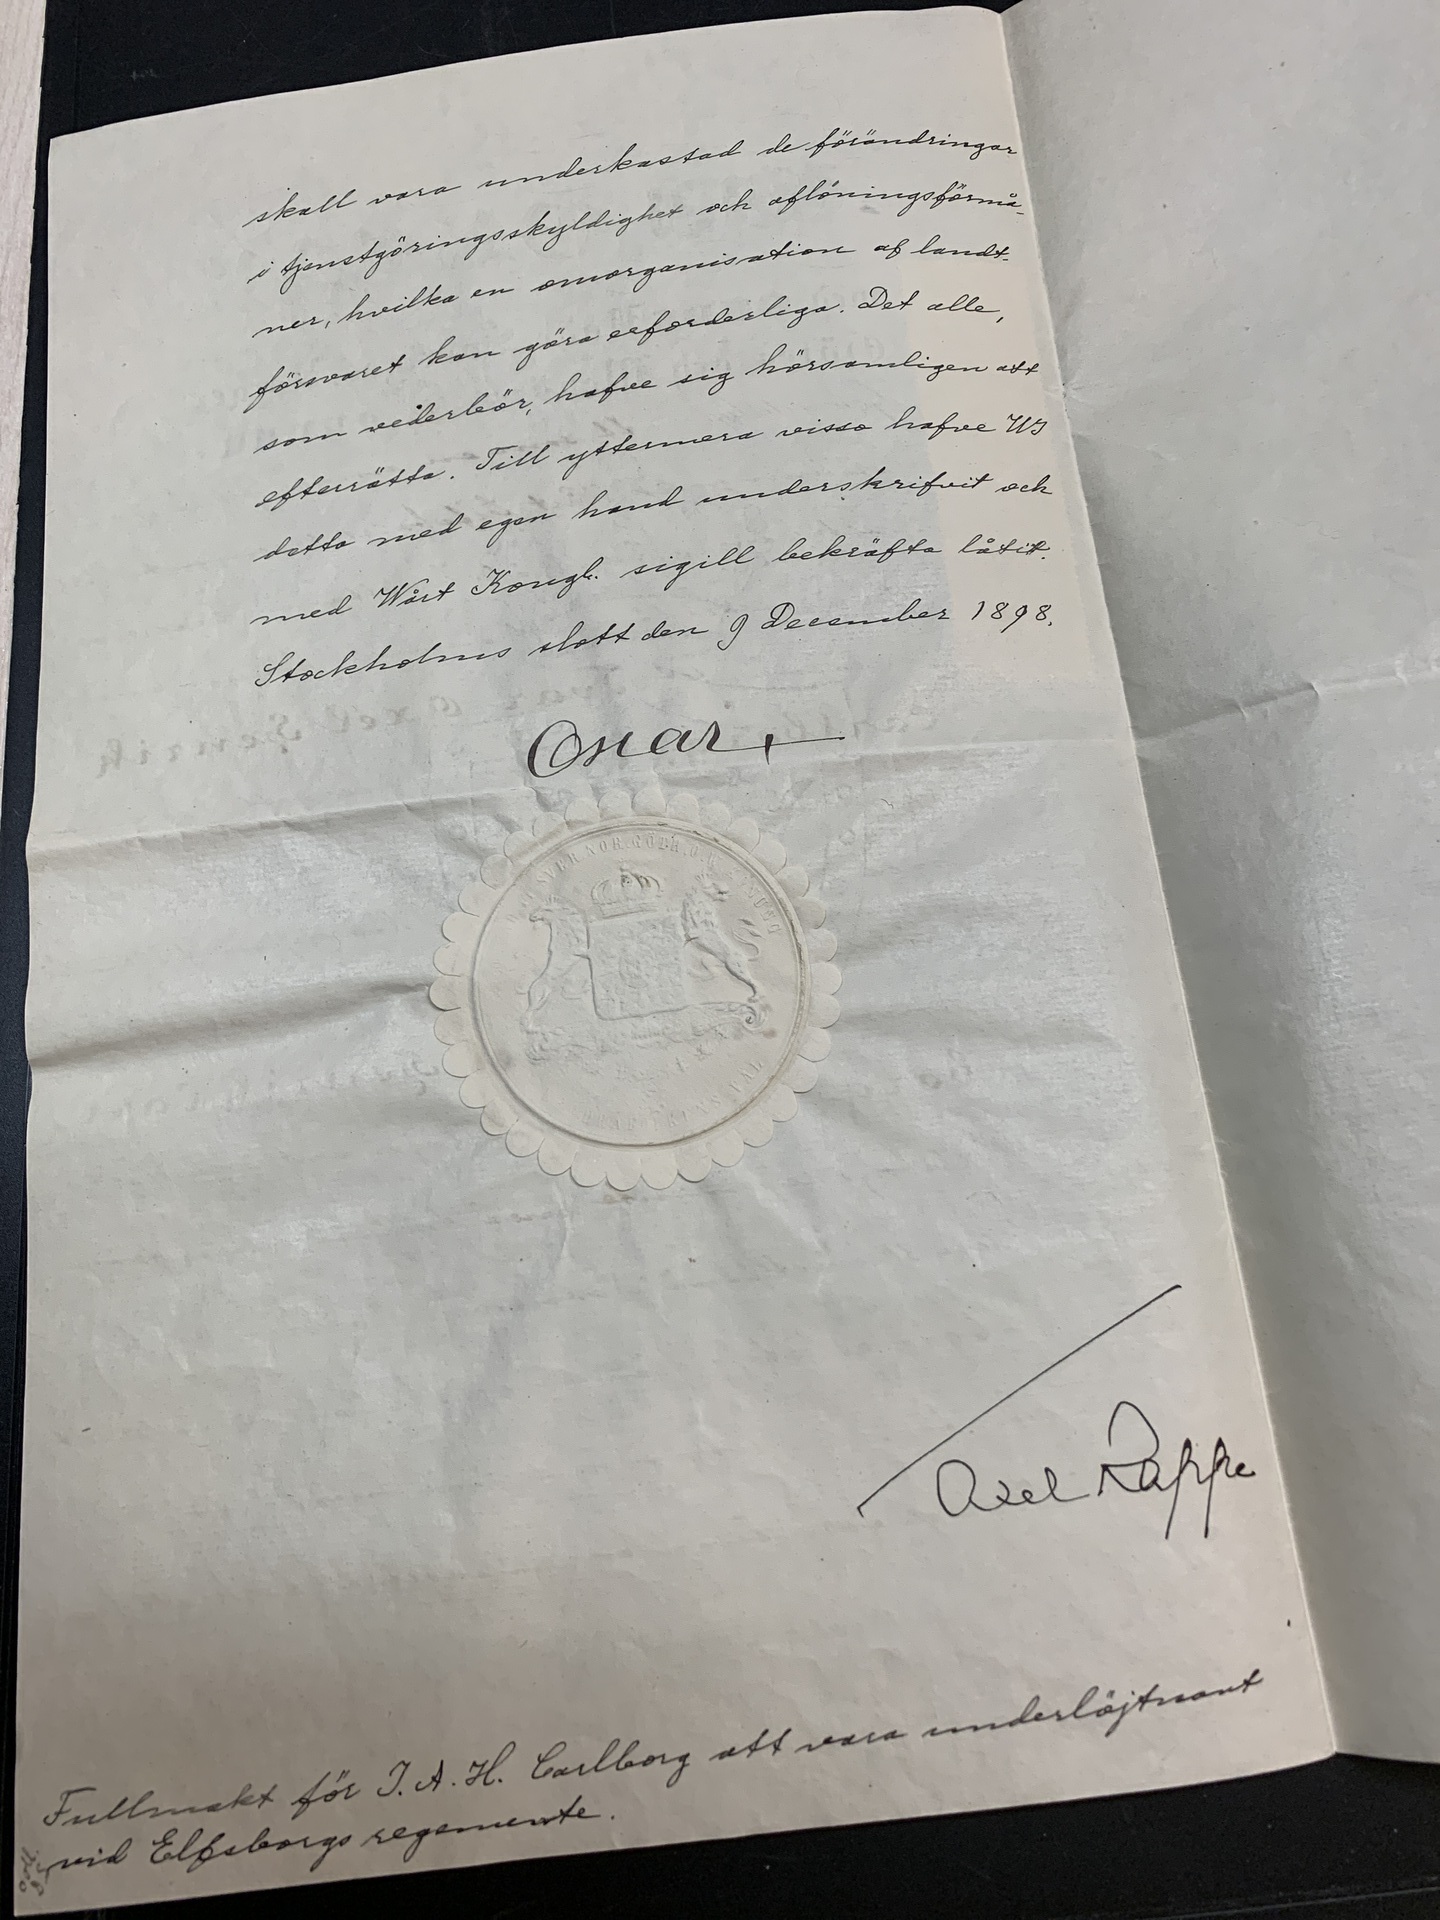 skall vara underkastad de förändringar
i tjenstgöringsskyldighet och aflöningsförmå-
ner, hvilka en omorganisation af landt-
försvaret kan göra erforderliga. Det alle,
som vederbör, hafve sig hörsamligen att
efterrätta. Till yttermera visso hafve Wi
detta med egen hand underskrifvit och
med Wårt Kongl. sigill bekräfta låtit.
Stockholms slott den 9 December 1898.
Oscar
Axel Rappe
Fullmakt för I. A. H. Carlborg att vara underlöjtnant
vid Elfsborgs regemente.